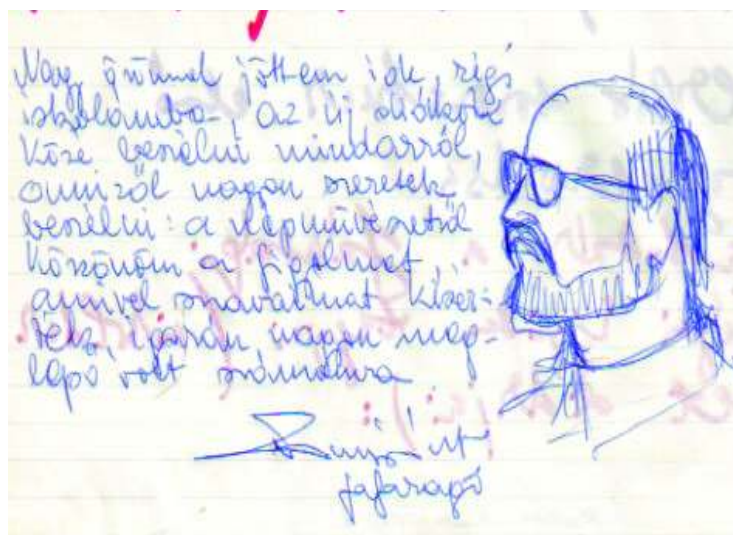 Nagy örömmel jöttem ide, régi
iskolámba, az új diákok
közé beszélni mindarról,
amiről nagyon szeretek
beszélni: a népművészetről
Köszönöm a figyelmet,
amivel szavaimat kísér-
ték, igazán nagyon meg-
lepő volt számomra
fafaragó